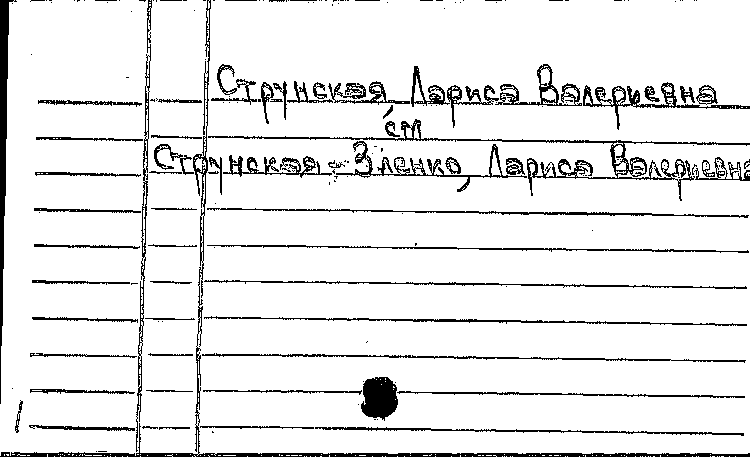 Струнская, Лариса Валерьевна
см
Струнская-Зленко, Лариса Валерьевна